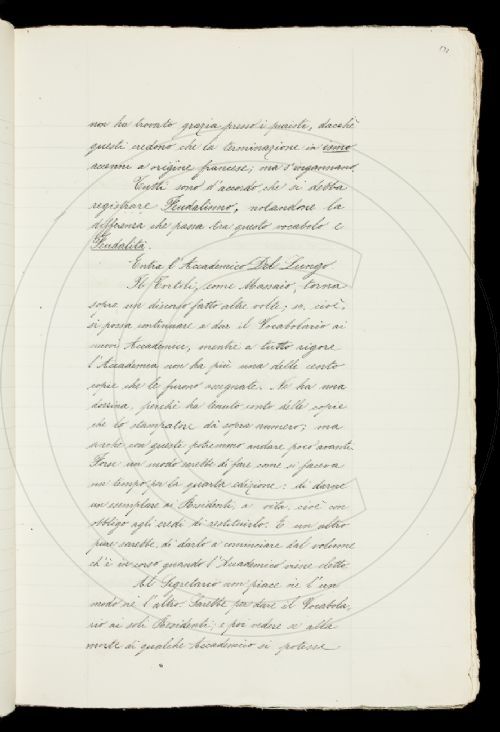 171
non ha trovato grazia presso i puristi, dacchè
questi credono che la terminazione in ismo
accenni a origine francese; ma s'ingannano.
Tutti sono d'accordo che si debba
registrare Feudalismo, notandone la
differenza che passa tra questo vocabolo e
Feudalità.
Entra l'Accademico Del Lungo
Il Tortoli, come Massaio, torna
sopra un discorso fatto altre volte; se, cioè,
si possa continuare a dar il Vocabolario ai
nuovi Accademici, mentre a tutto rigore
l'Accademia non ha più una delle cento
copie che le furono assegnate. Ne ha una
dozzina, perchè ha tenuto conto delle copie
che lo stampatore dà sopra numero; ma
anche con queste potremmo andare poco avanti.
Forse un modo sarebbe di fare come si faceva
un tempo per la quarta edizione: di darne
un esemplare ai Residenti, a vita, cioè con
obbligo agli eredi di restituirlo. E un altro
pure sarebbe, di darlo a cominciare dal volume
ch'è in corso quando l'Accademico viene eletto.
Al Segretario non piace nè l'un
modo nè l'altro. Sarebbe per dare il Vocabola-
rio ai soli Residenti; e poi vedere se alla
morte di qualche Accademico si potesse